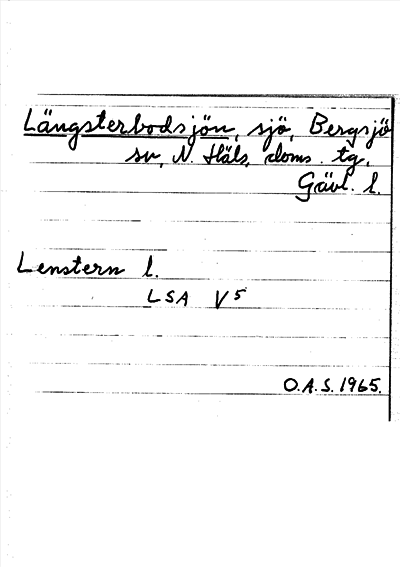 Längsterbodsjön, sjö, Bergsjö
sn, N. Häls. doms. tg,
Gävl. l.
Lenstern l.
LSA V5
O.A.S. 1965.